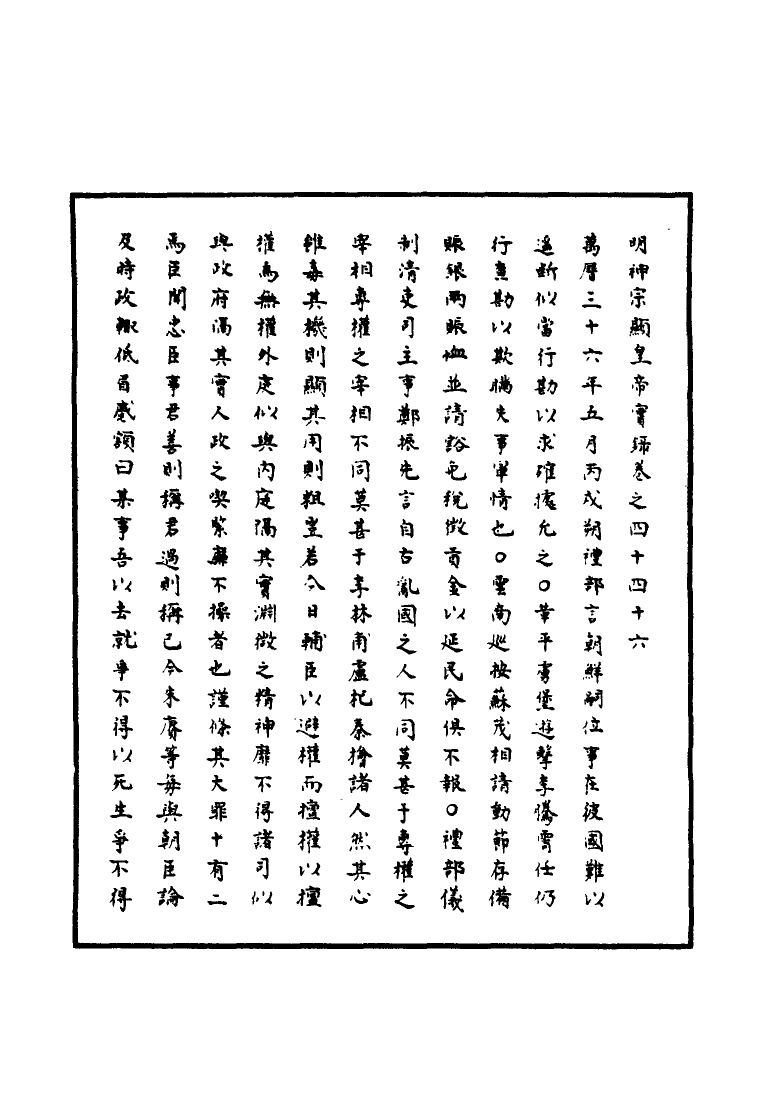 明神宗顯皇帝實錄卷之四百四十六
萬曆三十六年五月丙戌朔禮部言朝鮮嗣位事在彼國難以
遥斷似當行勘以求確據允之○革平虜堡遊擊李懋需任仍
行查勘以欺瞞失事軍情也○雲南巡按蘇茂相請動節存備
賑銀兩賑恤並請豁免稅徵貢金以延民命俱不報○禮部儀
制清吏司主事鄭振先言自古亂國之人不同莫甚于專權之
宰相專權之宰相不同莫甚于李林甫盧杞秦檜諸人然其心
雖毒其機則顯其用則粗豈若今日輔臣以避權而擅權以擅
權為無權外庭似與內庭隔其實淵微之精神靡不得諸司似
與政府隔其實人政之喫紫靡不操者也謹條其大罪十有二
焉臣聞忠臣事君善則稱君過則稱己今朱賡等每與朝臣論
及時政輒低眉蹙額曰某事吾以去就爭不得以死生爭不得